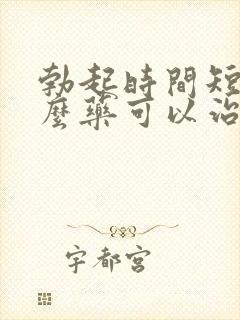 勃起時間短
麼藥可以治
宇都宮